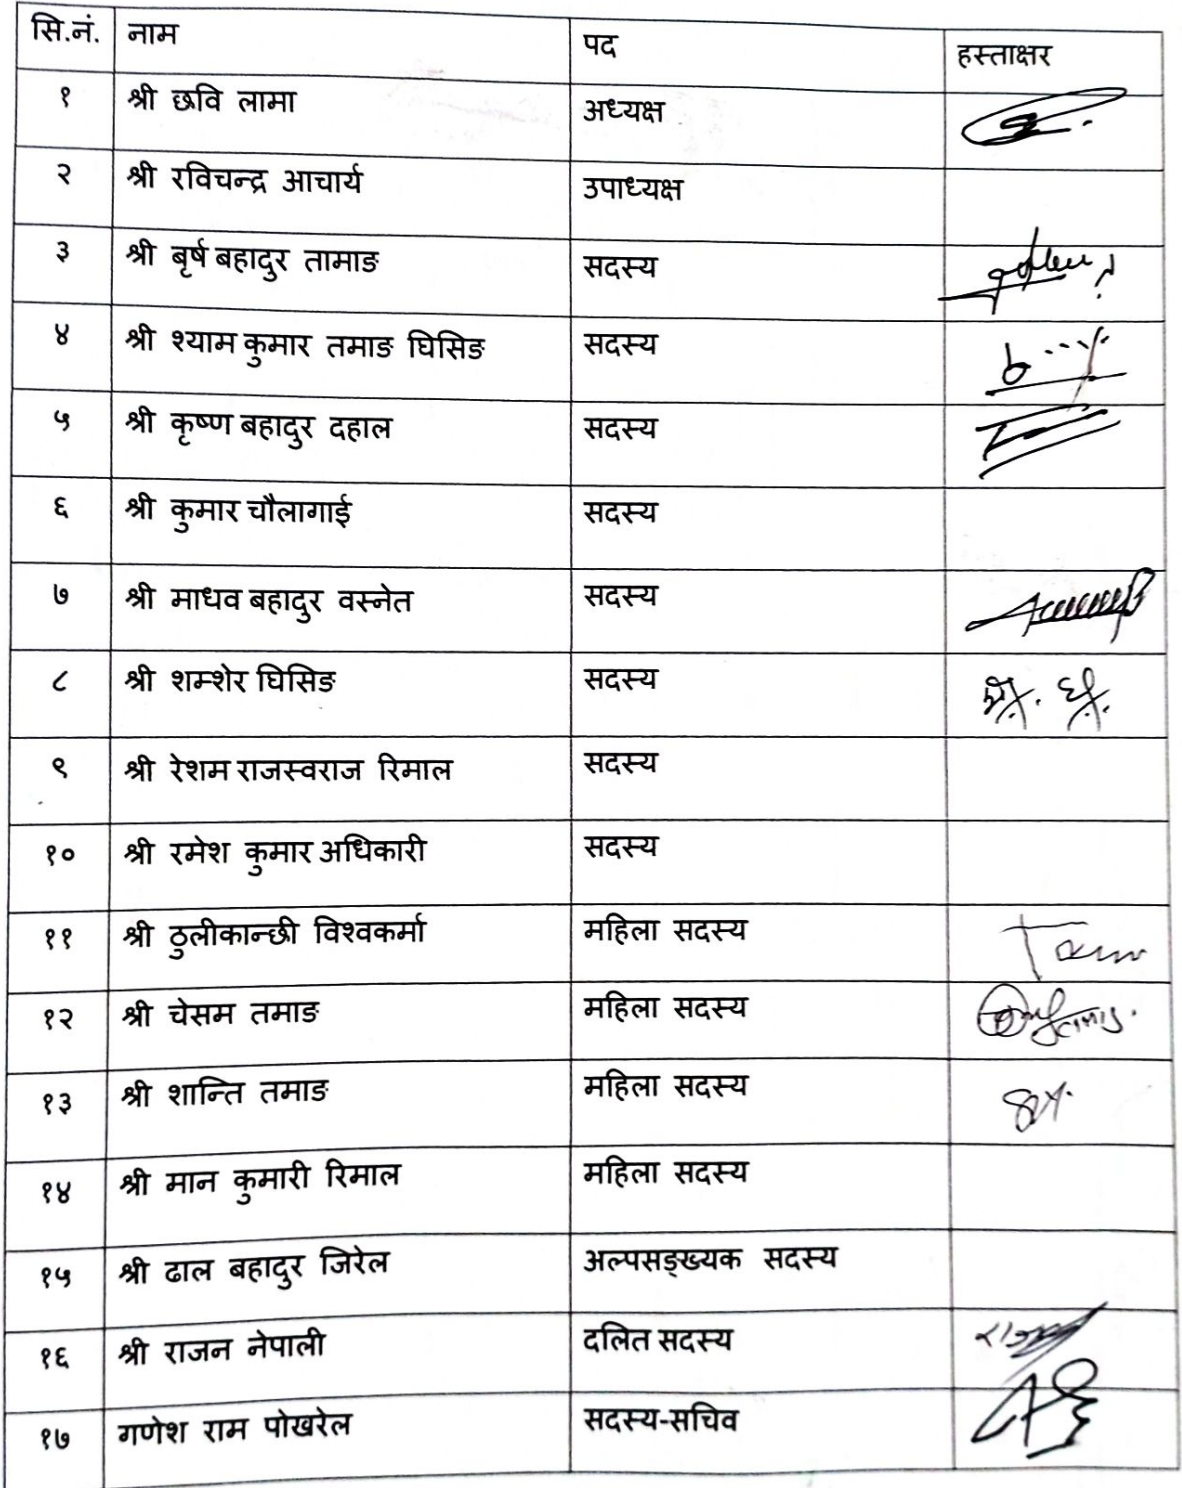 सि.नं. नाम पद हस्ताक्षर
१ श्री छवि लामा अध्यक्ष
२ श्री रविचन्द्र आचार्य उपाध्यक्ष
३ श्री बृर्ष बहादुर तामाङ सदस्य
४ श्री श्याम कुमार तमाङ घिसिङ सदस्य
५ श्री कृष्ण बहादुर दहाल सदस्य
६ श्री कुमार चौलागाई सदस्य
७ श्री माधव बहादुर वस्नेत सदस्य
८ श्री शम्शेर घिसिङ सदस्य
९ श्री रेशम राजस्वराज रिमाल सदस्य
१० श्री रमेश कुमार अधिकारी सदस्य
११ श्री ठुलीकान्छी विश्वकर्मा महिला सदस्य
१२ श्री चेसम तमाङ महिला सदस्य
१३ श्री शान्ति तमाङ महिला सदस्य
१४ श्री मान कुमारी रिमाल महिला सदस्य
१५ श्री ढाल बहादुर जिरेल अल्पसङ्ख्यक सदस्य
१६ श्री राजन नेपाली दलित सदस्य
१७ गणेश राम पोखरेल सदस्य-सचिव